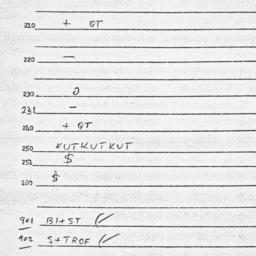 210 + QT
220 —
230 2
231 —
240 + QT
250 KUTKUTKUT
252 $
260 $
901 BI+ST (✓
902 S+TROF (✓